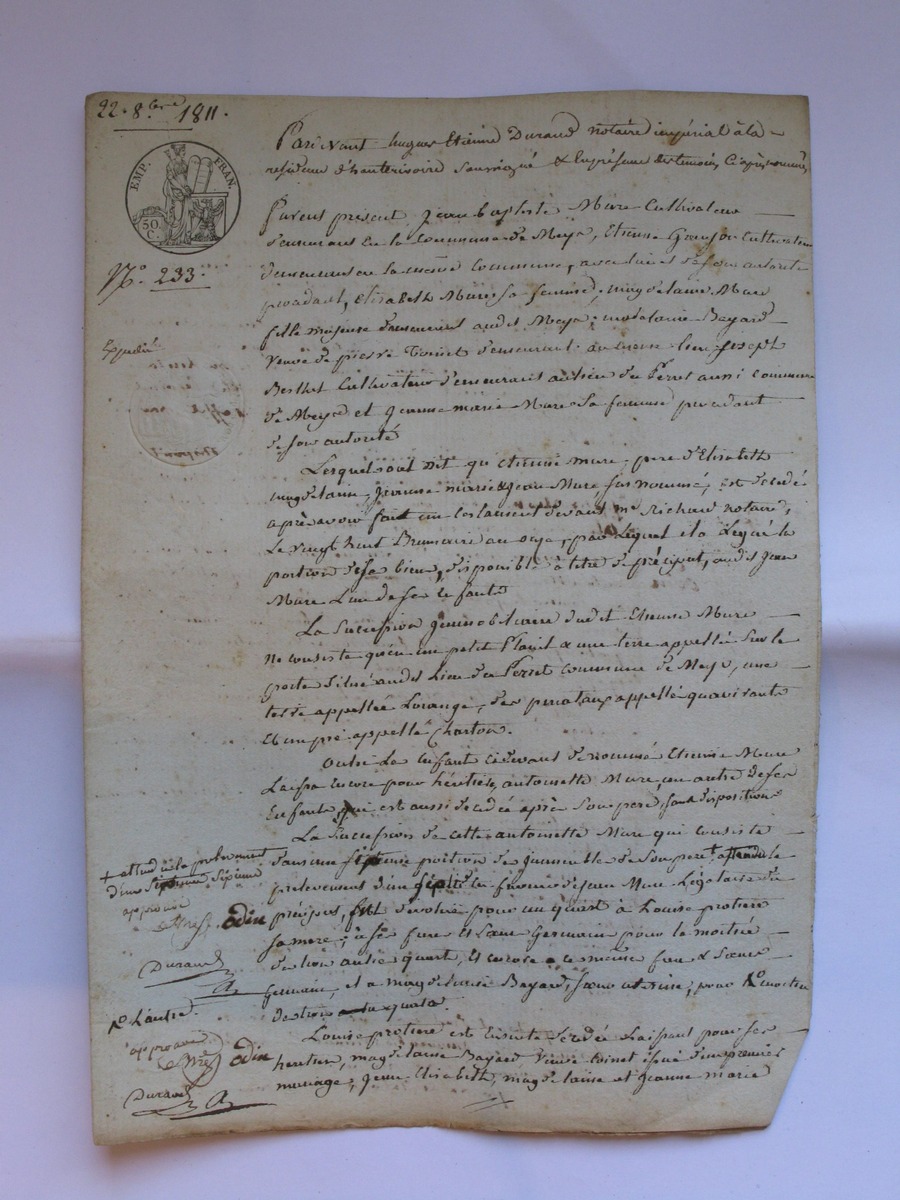 22. 8.bre 1811.
EMP. FRAN.
50. C.
N.o 233.
Expedié
Pardevant hugues Etienne Durand notaire impérial à la
residence d'hauterivoire soussigné & En presence des temoins Ci après nommés
furent present Jean baptiste Mure Cultivateur
demeurant En la Commune de Meys, Etienne Cultivateur
demeurant En la meme Commune, & de son autorité
procedant, Elisabeth Mure sa femme, magdelaine Mure
fille majeure demeurant audit Meys, magdelaine Bayard
veuve de pierre Toinet demeurant au meme lieu, joseph
Berthet Cultivateur demeurant au lieu du Perret aussi Commune
de Meys et jeanne marie Mure Sa femme procedant
de son autorité
Lesquels ont dit qu'etienne mure, pere d'Elisabeth
magdelaine, Jeanne marie & Jean Mure, sus nommés, est decedé
après avoir fait un testament devant me Richard notaire,
Le vingt huit Brumaire an onze, par Lequel il a Legué la
portion de ses biens disponible à titre de préciput, audit Jean
Mure L'un de ses Enfants
La Succession immobiliaire dudit Etienne Mure
Ne consiste qu'en un petit & une terre appellée Sur le
poste situé audit Lieu du Perret commune de Meys, une
terre appellée Lorange, des appellé
Et un pré appellé Charton.
Outre Les Enfants cidevant denommés Etienne Mure
Laissa Encore pour héritier, antoinette Mure, un autre de ses
Enfants qui est aussi decedée après Son pere, sans disposition
La Succession de cette antoinette Mure qui consiste
dans une Septieme portion des immeubles de Son pere + attendu le
prelevement d'un En faveur de jean Mure Légataire du
préciput, fut dévolue pour un quart à Louise protiere
sa mere, à ses frere Et Sœurs Germains pour la moitié
des trois autres quart, Et encore a ce meme frere & Sœurs
Germains, et a magdelaine Bayard, sœur uterine, pour L'o moitié
des trois quarts.
Louise protiere est Ensuite decedée Laissant pour ses
heritiers, magdelaine Bayard veuve toinet issue d'un premier
mariage, Jean Elisabeth, magdelaine et Jeanne marie
+ attendu le prelevement
d'un Septieme
approuvé
Durand
L'o L'autre.
approuvé
Durand